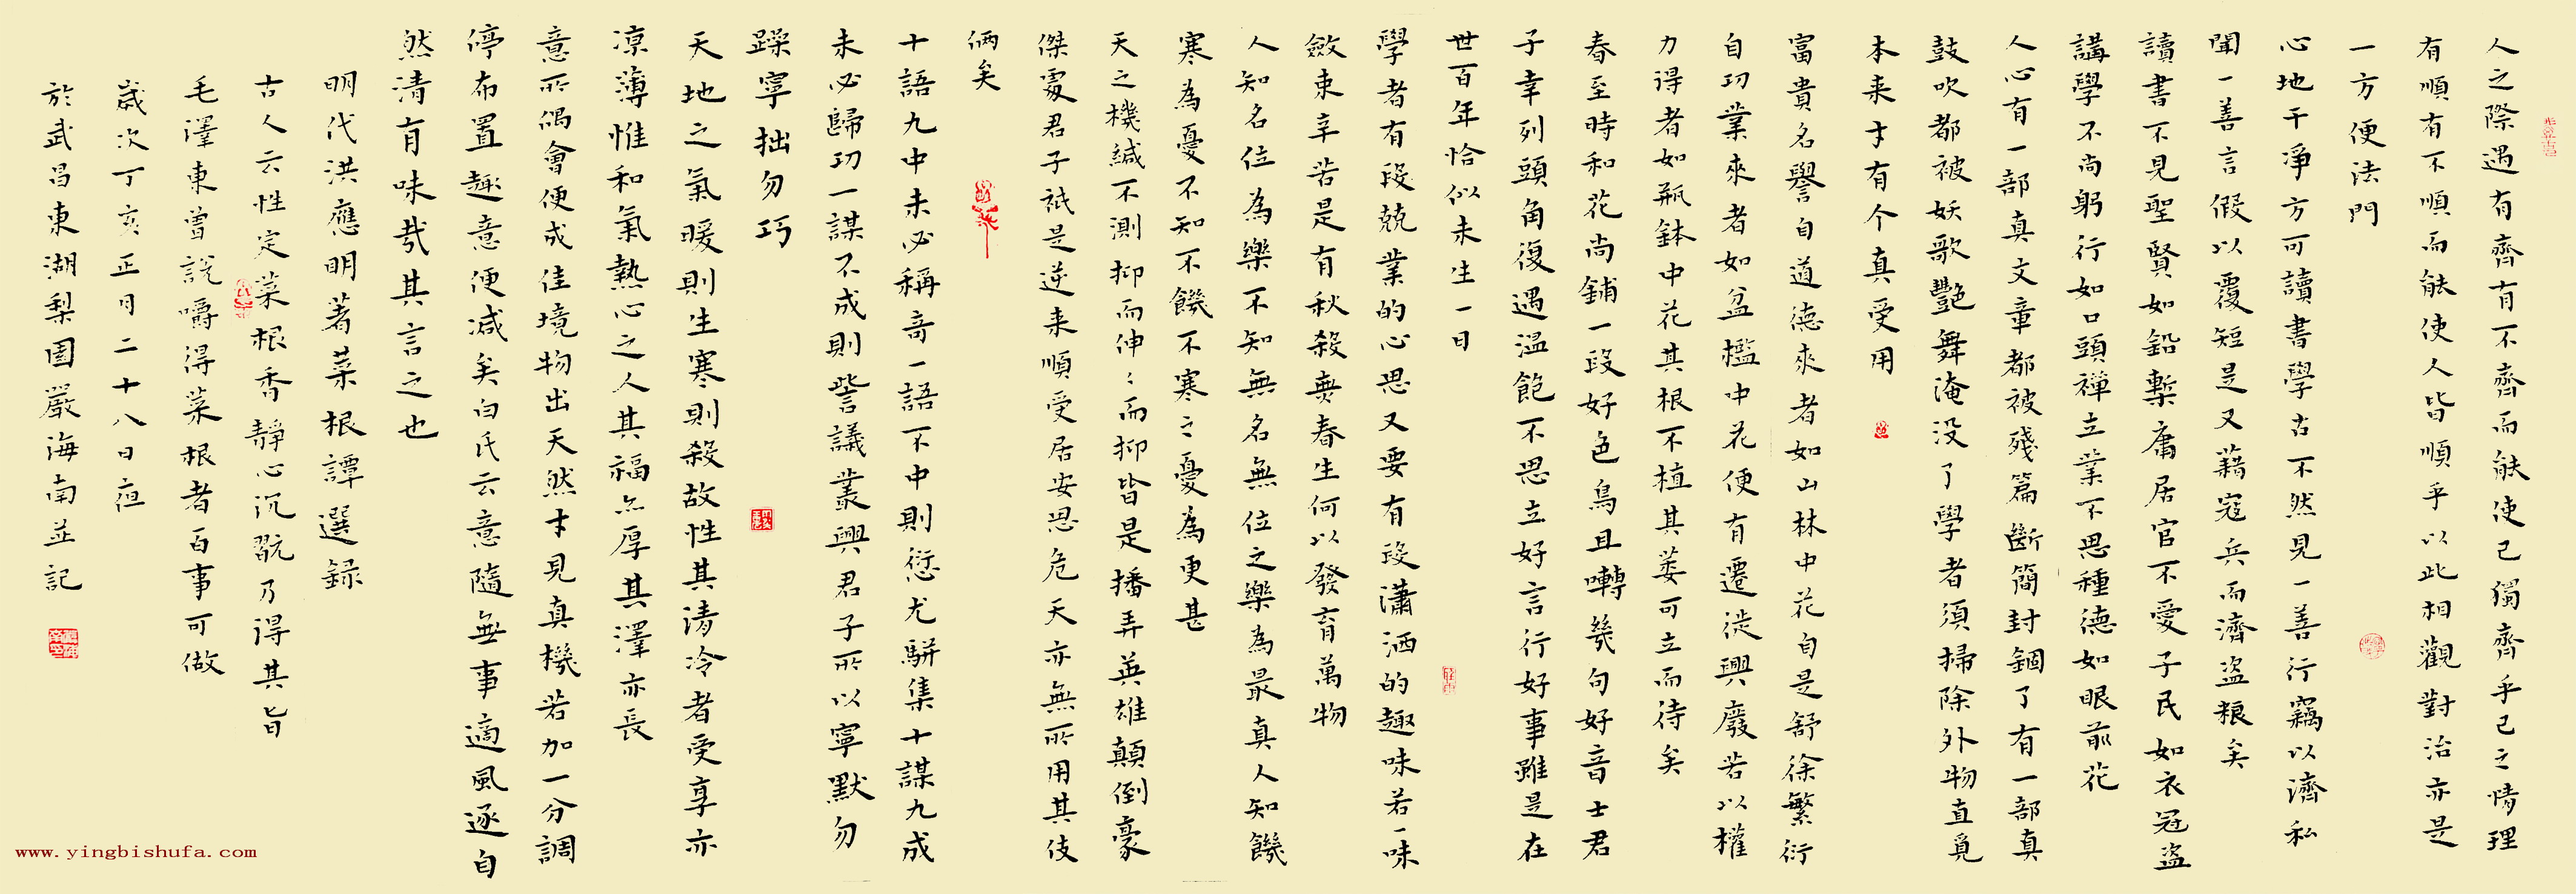 人之際遇有齊有不齊而能使己獨齊乎己之情理
有順有不順而能使人皆順乎以此相觀對治亦是
一方便法門
心地干淨方可讀書學古不然見一善行竊以濟私
聞一善言假以覆短是又藉寇兵而濟盜粮矣
讀書不見聖賢如鉛槧庸居官不愛子民如衣冠盜
講學不尚躬行如口頭禪立業不思種德如眼前花
人心有一部真文章都被殘篇斷簡封錮了有一部真
鼓吹都被妖歌艷舞淹没了學者須掃除外物直覓
本来才有个真受用
富貴名譽自道德來者如山林中花自是舒徐繁衍
自功業來者如盆檻中花便有遷徙興廢若以權
力得者如瓶鉢中花其根不植其萎可立而待矣
春至時和花尚鋪一段好色鳥且囀幾句好音士君
子幸列頭角復遇温飽不思立好言行好事雖是在
世百年恰似未生一日
學者有段兢業的心思又要有段瀟洒的趣味若一味
斂束辛苦是有秋殺無春生何以發育萬物
人知名位為樂不知無名無位之樂為最真人知饑
寒為憂不知不饑不寒之憂為更甚
天之機緘不測抑而伸々而抑皆是播弄英雄顛倒豪
傑處君子祇是逆来順受居安思危天亦無所用其伎
倆矣
十語九中未必稱奇一語不中則愆尤駢集十謀九成
未必歸功一謀不成則訾議叢興君子所以寧默勿
躁寧拙勿巧
天地之氣暖則生寒則殺故性其清冷者受享亦
凉薄惟和氣熱心之人其福亦厚其澤亦長
意所偶會便成佳境物出天然才見真機若加一分調
停布置趣意便減矣白氏云意隨無事適風逐自
然清有味哉其言之也
明代洪應明著菜根譚選録
古人云性定菜根香静心沉翫乃得其旨
毛澤東曾説嚼得菜根者百事可做
歲次丁亥正月二十八日夜
於武昌東湖梨園嚴海南並記
www.yingbishufa.com